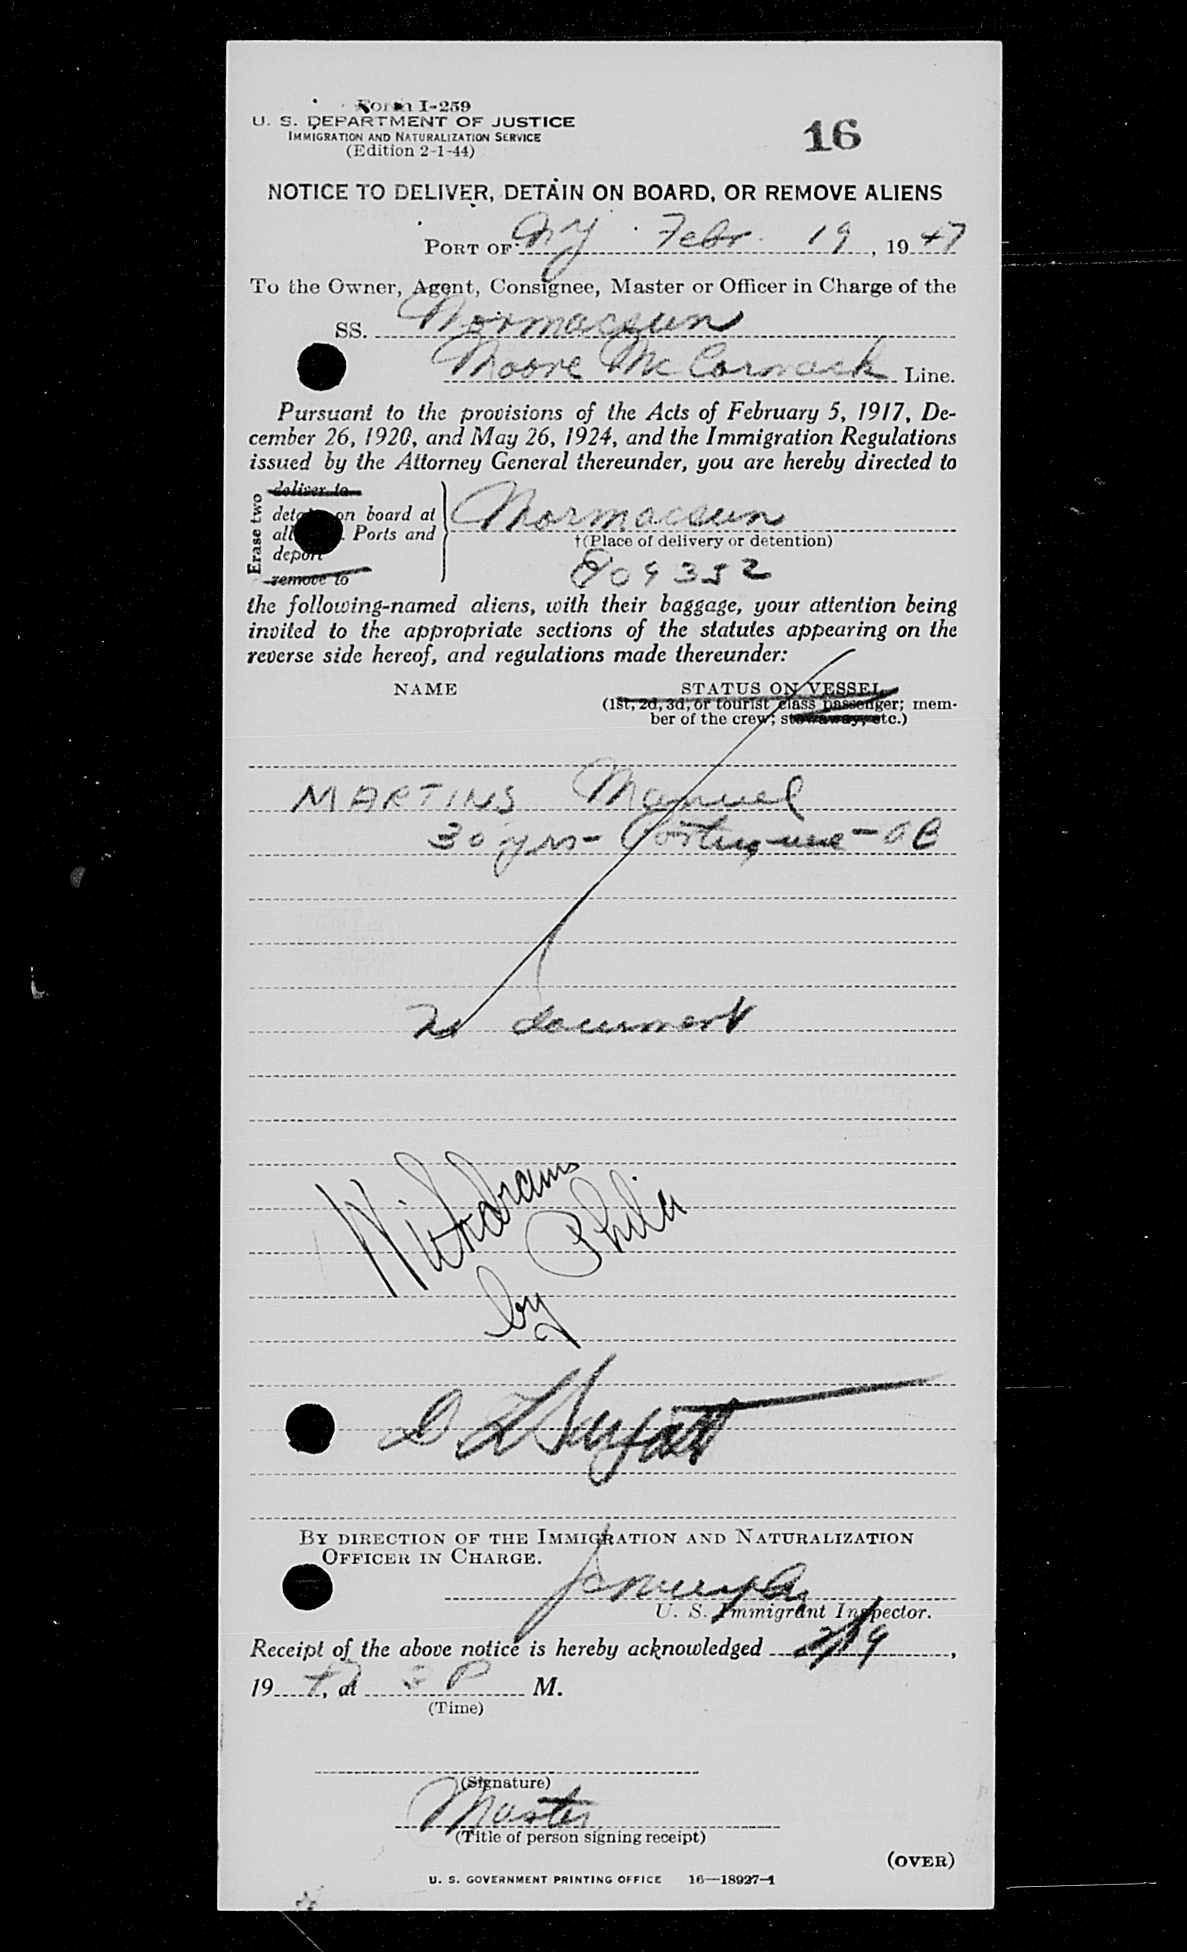 Form I-259
U. S. DEPARTMENT OF JUSTICE
IMMIGRATION AND NATURALIZATION SERVICE
(Edition 2-1-44)
16
NOTICE TO DELIVER, DETAIN ON BOARD, OR REMOVE ALIENS
PORT OF NY Febr. 19, 1947
To the Owner, Agent, Consignee, Master or Officer in Charge of the
SS. Mormacsun
Moore McCormack Line.
Pursuant to the provisions of the Acts of February 5, 1917, De-
cember 26, 1920, and May 26, 1924, and the Immigration Regulations
issued by the Attorney General thereunder, you are hereby directed to
Erase two
deliver to
detain on board at
all Ports and
deport
remove to
Mormacsun
†(Place of delivery or detention)
809352
the following-named aliens, with their baggage, your attention being
invited to the appropriate sections of the statutes appearing on the
reverse side hereof, and regulations made thereunder:
NAME
STATUS ON VESSEL
(1st, 2d, 3d, or tourist class passenger; mem-
ber of the crew; stowaway, etc.)
MARTINS Manuel
30 yrs - Portuguese - AB
no document
Withdrawn
by Phila
BY DIRECTION OF THE IMMIGRATION AND NATURALIZATION
OFFICER IN CHARGE.
U. S. Immigrant Inspector.
Receipt of the above notice is hereby acknowledged 2/19,
1947, at P M.
(Time)
(Signature)
Master
(Title of person signing receipt)
(OVER)
U. S. GOVERNMENT PRINTING OFFICE 16—18927-1